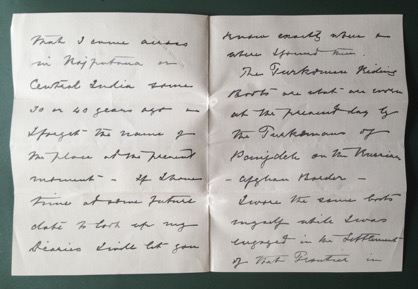 that I came across
in Rajputana or
Central India some
30 or 40 years ago
I forget the name of
the place at the present
moment - If I have
time at some future
date to look up my
Diaries I will let you
know exactly when &
where I found them.
The Turkoman Riding
Boots are what are worn
at the present day by
the Turkomans of
Panjdeh on the Russian
- Afghan Border -
I wore the same boots
myself while I was
engaged in the Settlement
of that Frontier in